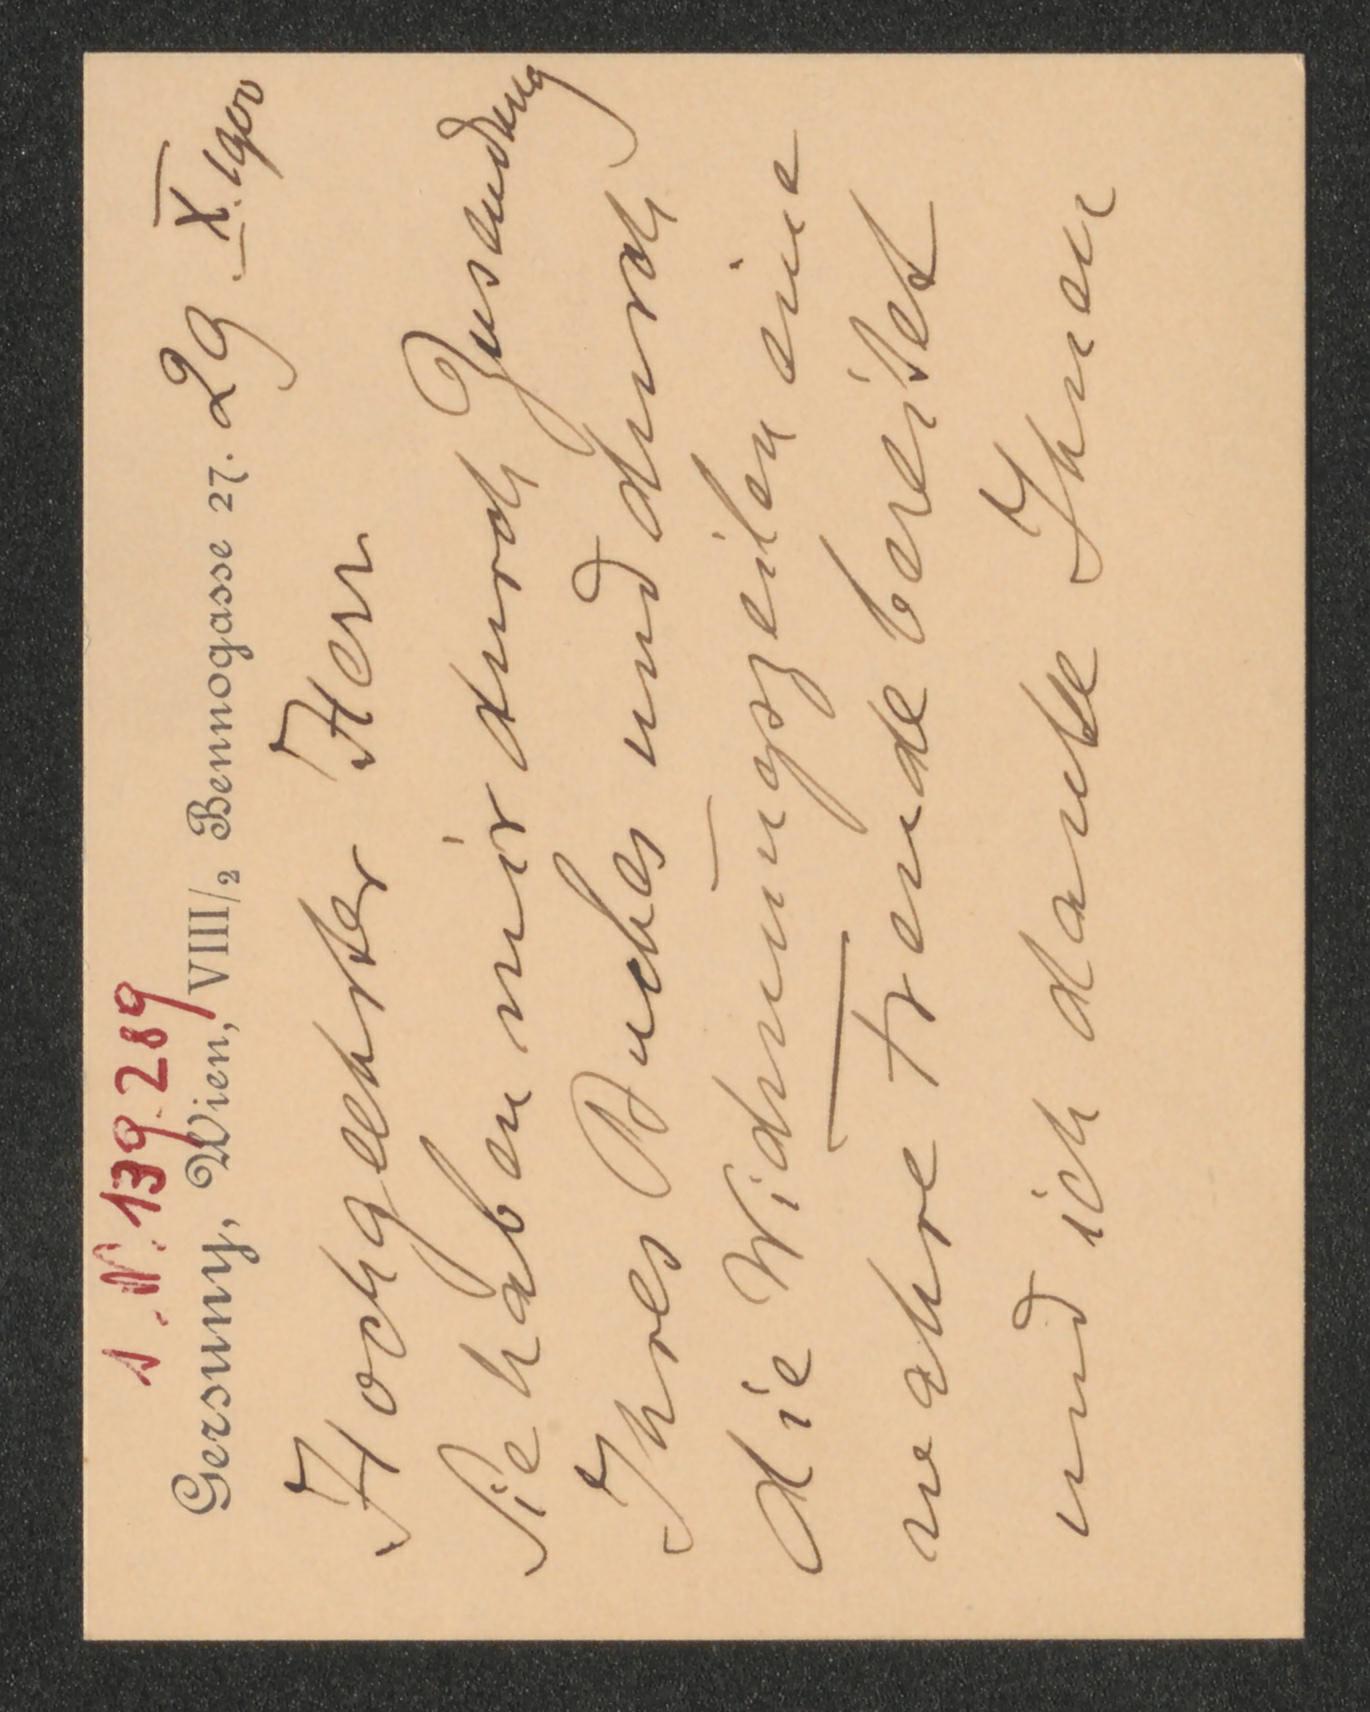 I. N. 139.289
Gersuny, Wien, VIII/2 Bennogasse 27. 29. X. 1900
Hochgeehrter Herr
Sie haben mir durch Zusendung
Ihres Buches und durch
die Widmungszeilen eine
wahre Freude bereitet
und ich danke Ihnen